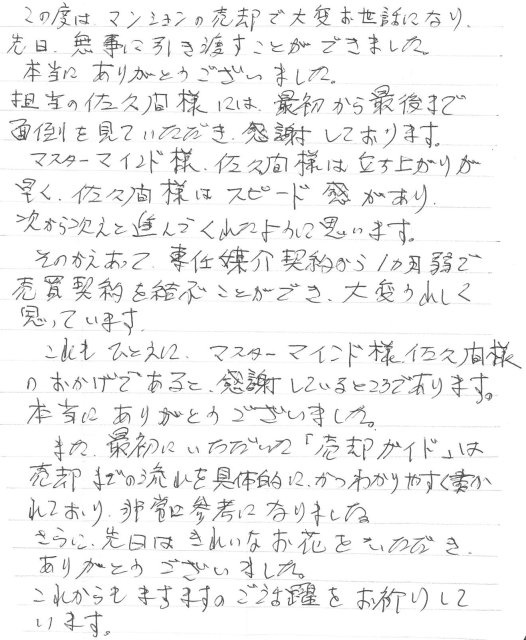 この度は マンションの売却で大変お世話になり、
先日、無事に引き渡すことができました。
本当に ありがとうございました。
担当の佐久間様には、最初から最後まで
面倒を見ていただき、感謝しております。
マスターマインド様、佐久間様は立ち上がりが
早く、佐久間様は スピード感があり、
次から次えと進んでくれたように思います。
そのかいあって、専任媒介契約から1カ月弱で
売買契約を結ぶことができ、大変うれしく
思っています。
これもひとえに、マスターマインド様、佐久間様
のおかげであると、感謝しているところであります。
本当に ありがとうございました。
また、最初にいただいた「売却ガイド」は
売却までの流れを具体的に、かつわかりやすく書か
れており、非常に参考になりました。
さらに、先日は きれいなお花をいただき、
ありがとうございました。
これからもますますのご活躍をお祈りして
います。